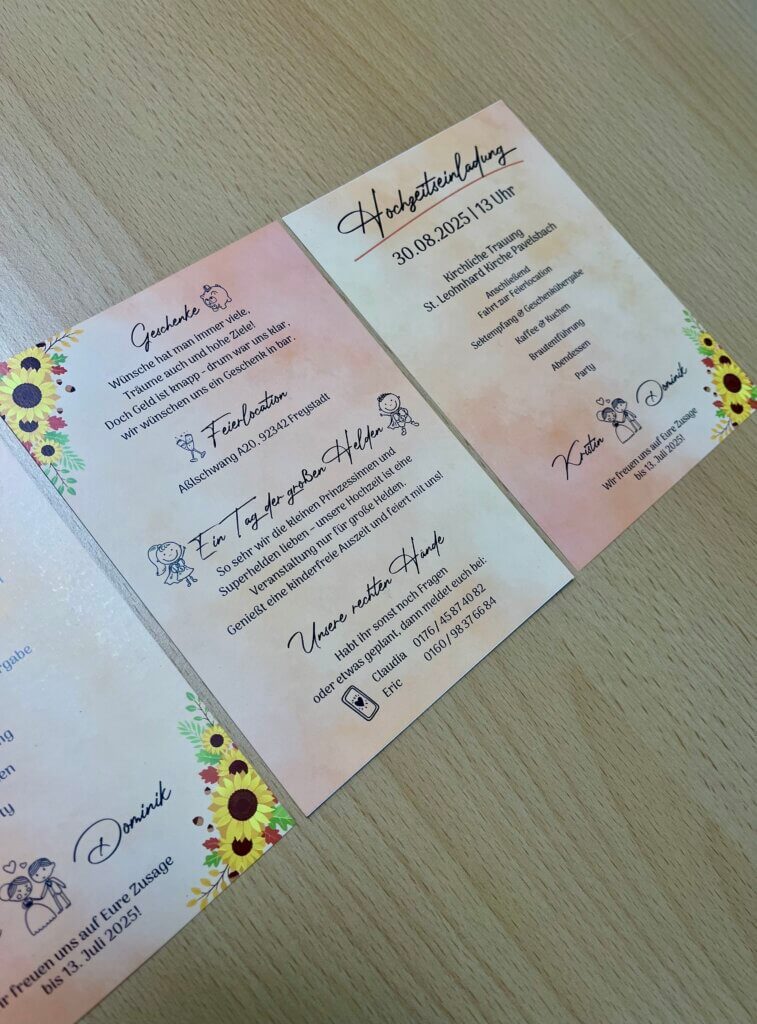 Geschenke
Wünsche hat man immer viele,
Träume auch und hohe Ziele!
Doch Geld ist knapp - drum war uns klar,
wir wünschen uns ein Geschenk in bar.
Feierlocation
Aßlschwang A20, 92342 Freystadt
Ein Tag der großen Helden
So sehr wir die kleinen Prinzessinnen und
Superhelden lieben – unsere Hochzeit ist eine
Veranstaltung nur für große Helden.
Genießt eine kinderfreie Auszeit und feiert mit uns!
Unsere rechten Hände
Habt ihr sonst noch Fragen
oder etwas geplant, dann meldet euch bei:
Claudia 0176 / 45 87 40 82
Eric 0160 / 98 37 66 84
Hochzeitseinladung
30.08.2025 | 13 Uhr
Kirchliche Trauung
St. Leohnhard Kirche Pavelsbach
Anschließend
Fahrt zur Feierlocation
Sektempfang & Geschenkübergabe
Kaffee & Kuchen
Brautentführung
Abendessen
Party
Kristin Dominik
Wir freuen uns auf Eure Zusage
bis 13. Juli 2025!
Dominik
freuen uns auf Eure Zusage
bis 13. Juli 2025!